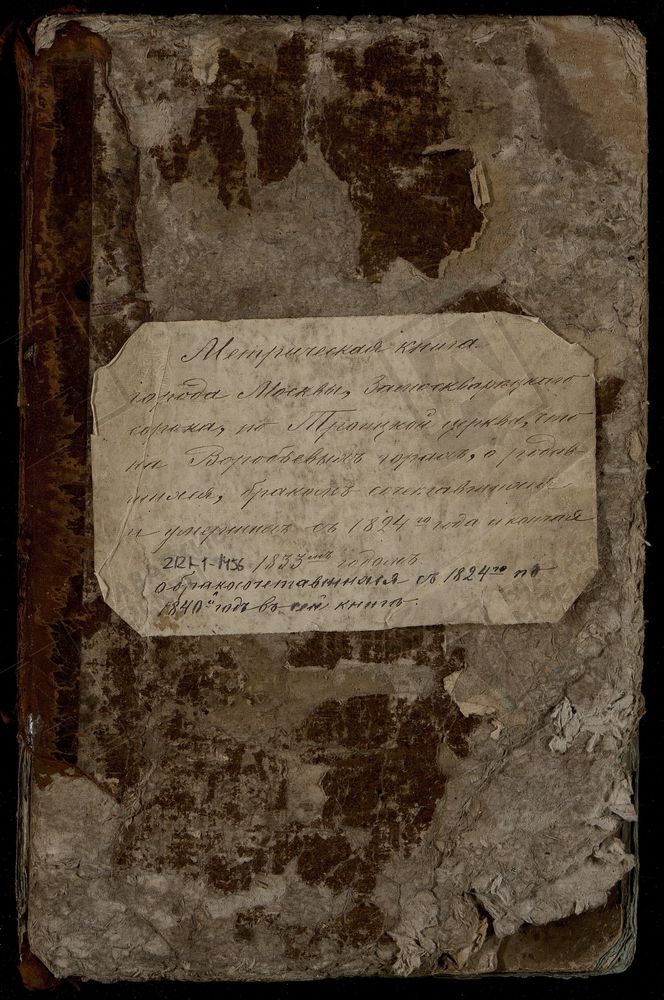 Метрическая книга
города Москвы, Замоскварецкаго
сорока, по Троицкой церкве, что
на Воробьевыхъ горахъ, о родив-
шихся, бракомъ сочетавшихся
и умершихъ съ 1824го года и кончая
2121-1-1456 1833мъ годомъ
о бракосочетавшихся съ 1824го по
1840й годъ въ сей книге.